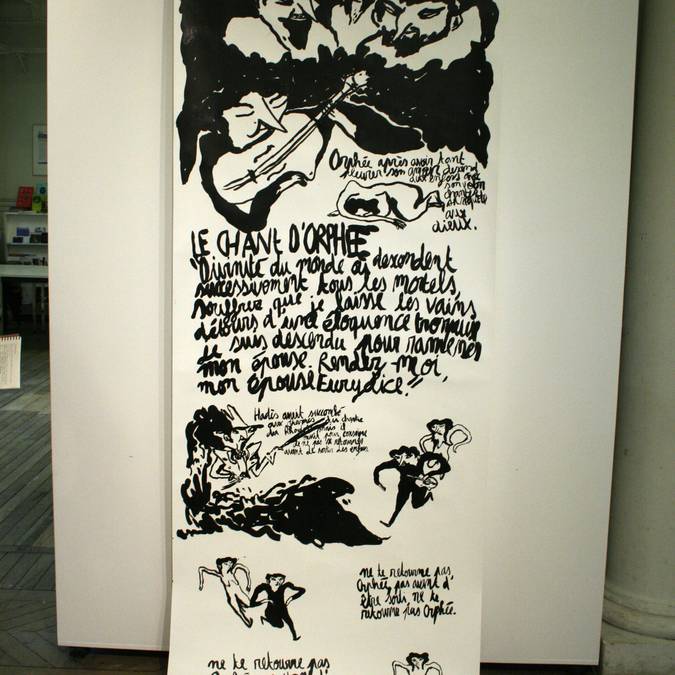 Orphée après avoir tant
pleurer son
aux
dieux.
LE CHANT D'ORPHEE
"Divinité du monde où descendent
successivement tous les mortels,
souffrez que je laisse les vains
détours d'une éloquence trompeuse
Je suis descendu pour ramener
mon épouse. Rendez-moi,
mon épouse Eurydice!"
Hadès avait succombé
aux charmes du chant
mais il
avait pour consigne
de ne pas se retourner
avant de sortir des enfers
ne te retourne pas
Orphée, pas avant d'
être sorti, ne te
retourne pas Orphée.
ne te retourne pas